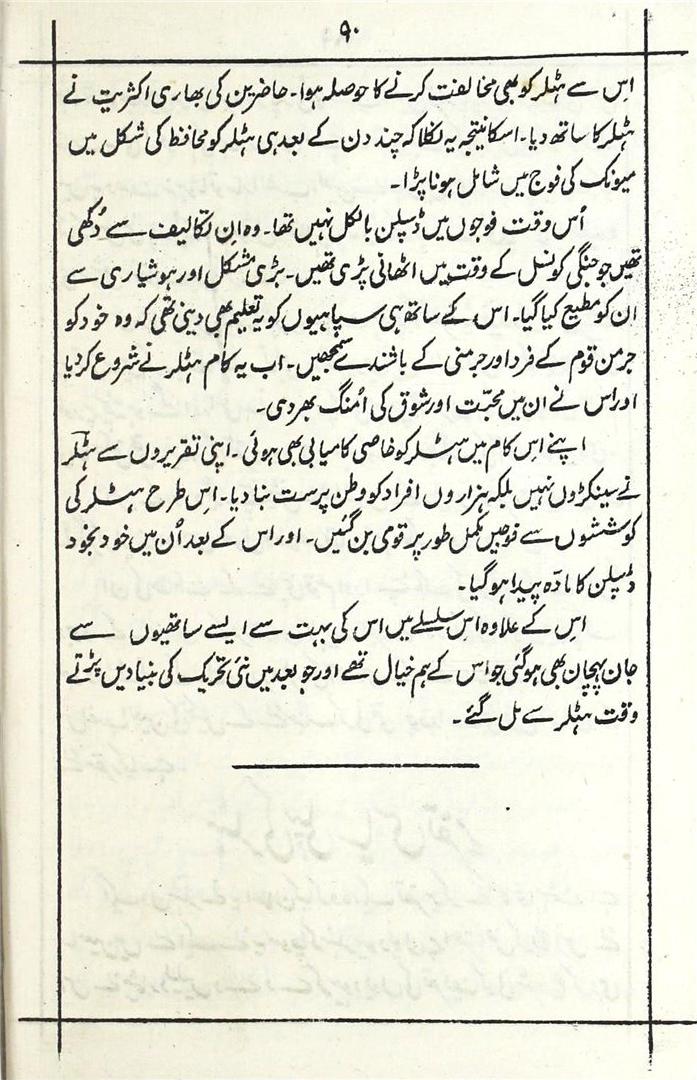 ۹۰
اِس سے ہٹلر کو بھی مخالفت کرنے کا حوصلہ ہوا۔ حاضرین کی بھاری اکثریت نے
ہٹلر کا ساتھ دیا۔ اسکا نتیجہ یہ نکلا کہ چند دن کے بعد ہی ہٹلر کو محافظ کی شکل میں
میونک کی فوج میں شامل ہونا پڑا۔
اُس وقت فوجوں میں ڈسپلن بالکل نہیں تھا۔ وہ ان تکالیف سے دُکھی
تھیں جو جنگی کونسل کے وقت میں اٹھانی پڑی تھیں۔ بڑی مشکل اور ہوشیاری سے
ان کو مطیع کیا گیا۔ اس کے ساتھ ہی سپاہیوں کو یہ تعلیم بھی دینی تھی کہ وہ خود کو
جرمن قوم کے فرد اور جرمنی کے باشندے سمجھیں۔ اب یہ کام ہٹلر نے شروع کر دیا
اور اس نے ان میں محبّت اور شوق کی اُمنگ بھر دی۔
اپنے اِس کام میں ہٹلر کو خاصی کامیابی بھی ہوئی۔ اپنی تقریروں سے ہٹلر
نے سینکڑوں نہیں بلکہ ہزاروں افراد کو وطن پرست بنا دیا۔ اس طرح ہٹلر کی
کوششوں سے فوجیں مکمل طور پر قومی بن گئیں۔ اور اس کے بعد اُن میں خود بخود
ڈسپلن کا مادّہ پیدا ہو گیا۔
اِس کے علاوہ اِس سلسلے میں اس کی بہت سے ایسے ساتھیوں سے
جان پہچان بھی ہو گئی جو اس کے ہم خیال تھے اور جو بعد میں نئی تحریک کی بنیادیں پڑتے
وقت ہٹلر سے مل گئے۔